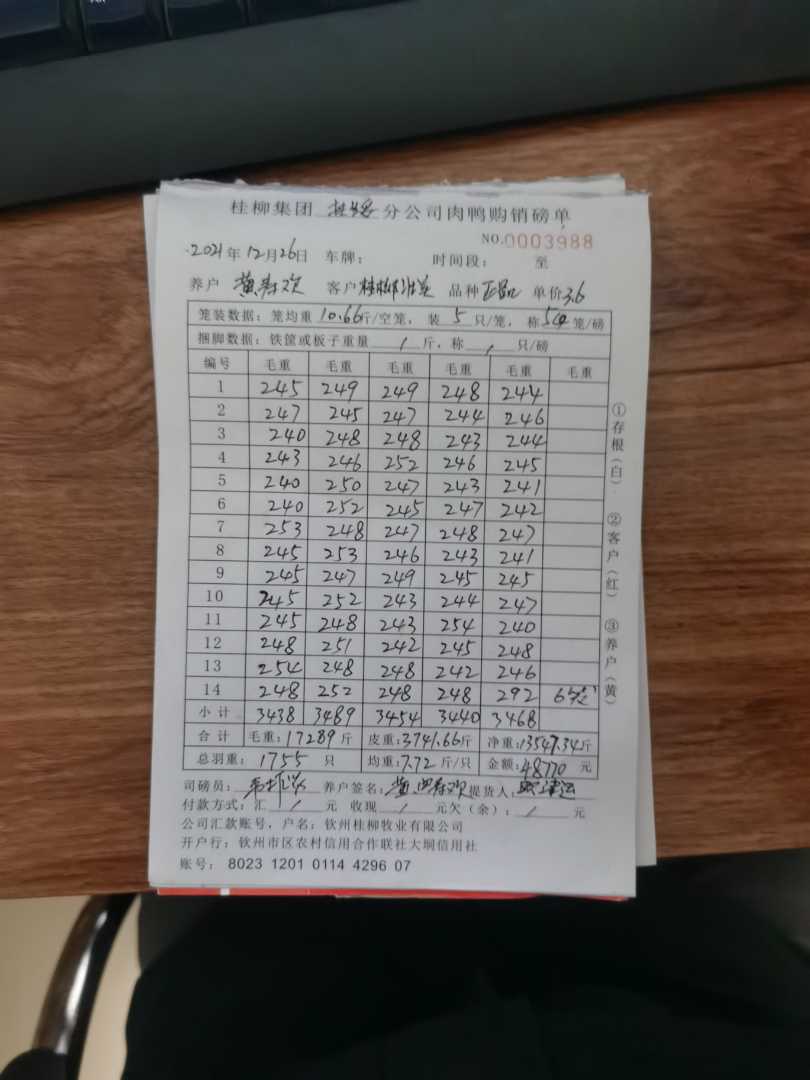 桂柳集团 分公司肉鸭购销磅单
NO.0003988
2021年12月26日 车牌: 时间段: 至
养户 黄寿欢 客户 桂柳 品种 单价3.6
笼装数据:笼均重 10.66斤/空笼,装 5 只/笼,称 5@ 笼/磅
捆脚数据:铁筐或板子重量 / 斤,称 / 只/磅
编号 毛重 毛重 毛重 毛重 毛重 毛重
1 245 249 249 248 244
2 247 245 247 244 246
3 240 248 248 243 244
4 243 246 252 246 245
5 240 250 247 243 241
6 240 252 245 247 242
7 253 248 247 248 247
8 245 253 246 243 241
9 245 247 249 245 245
10 245 252 243 244 247
11 245 248 243 254 240
12 248 251 242 245 248
13 254 248 248 242 246
14 248 252 248 248 292 6笼
小计 3438 3489 3454 3440 3468
合计 毛重:17289斤 皮重:3741.66斤 净重:13547.34斤
总羽重: 1755 只 均重:7.72 斤/只 金额:48770 元
司磅员: 养户签名: 黄寿欢 提货人:
付款方式:汇 / 元 收现 / 元欠(余): / 元
公司汇款账号,户名:钦州桂柳牧业有限公司
开户行:钦州市区农村信用合作联社大垌信用社
账号: 8023 1201 0114 4296 07
①存根(白)
②客户(红)
③养户(黄)